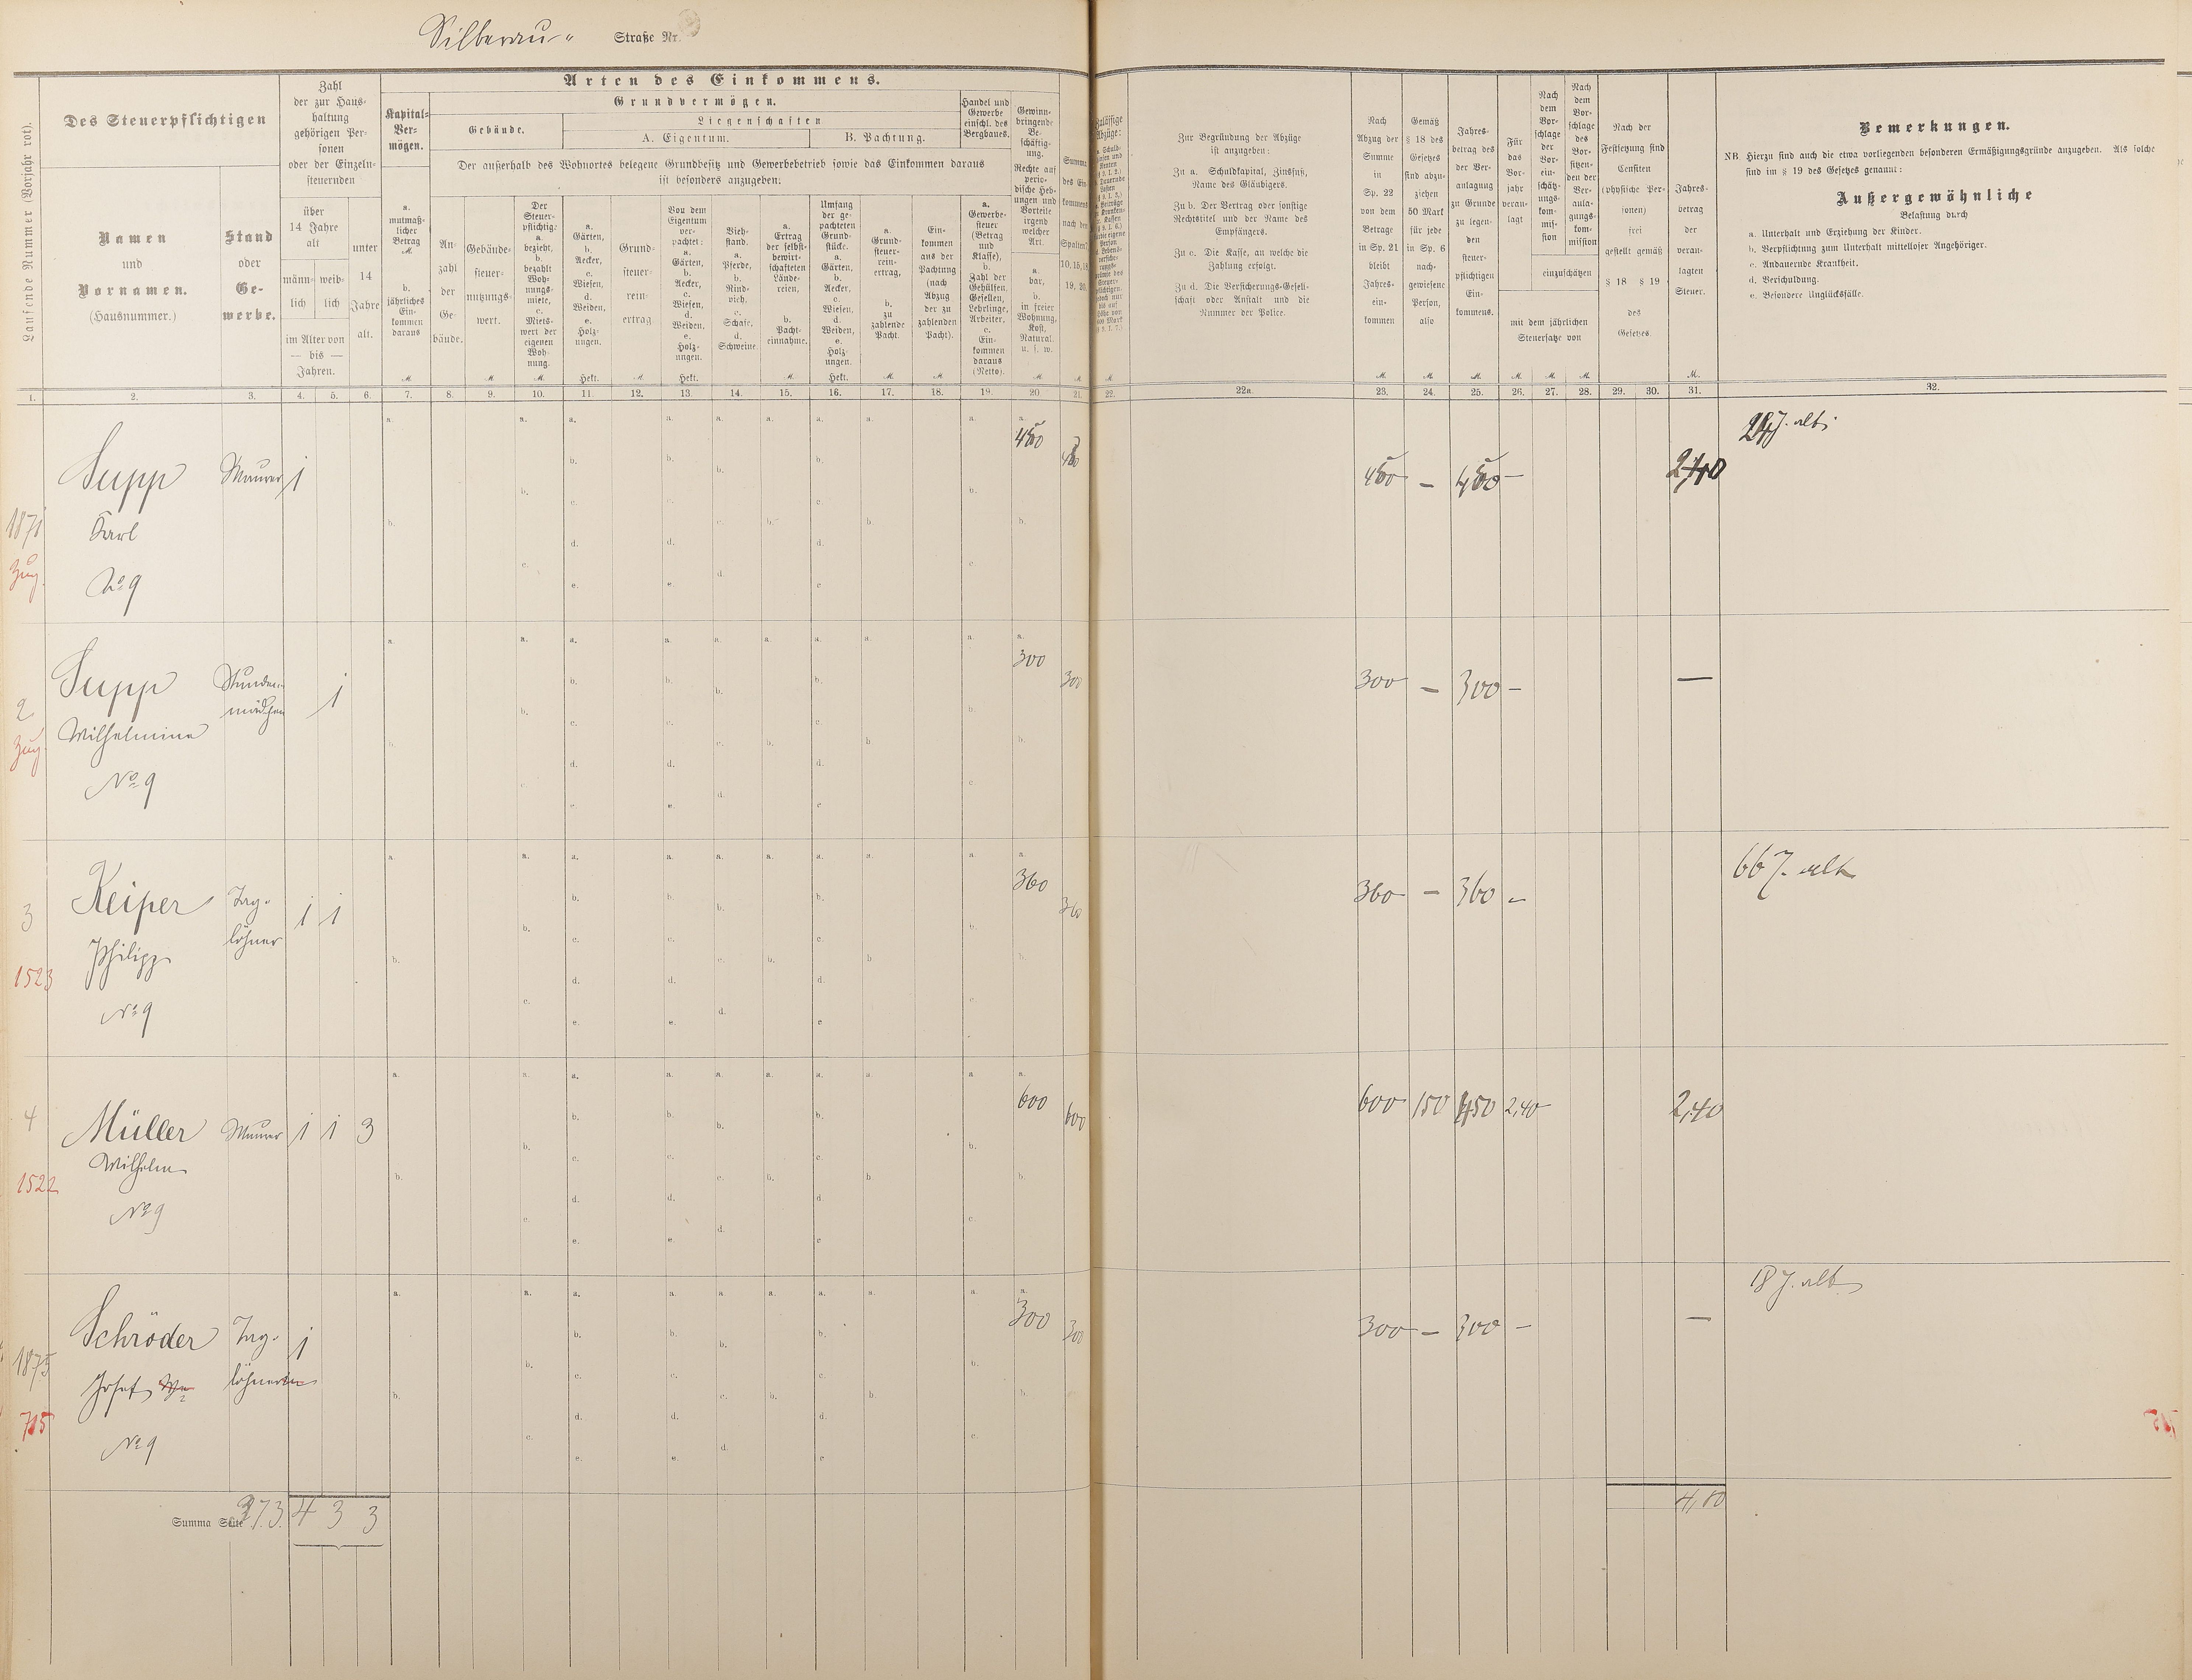 Silberau- Straße Nr.
Laufende Nummer (Vorjahr rot).
Des Steuerpflichtigen
Namen
und
Vornamen.
(Hausnummer.)
Stand
oder
Ge-
werbe.
Zahl
der zur Haus-
haltung
gehörigen Per-
sonen
oder der Einzeln-
steuernden
über
14 Jahre
alt
männ-
lich
weib-
lich
unter
14
Jahre
alt.
im Alter von
— bis —
Jahren.
Arten des Einkommens.
Kapital-
Ver-
mögen.
a.
mutmaß-
licher
Betrag
M.
b.
jährliches
Ein-
kommen
daraus
M.
Grundvermögen.
Gebäude.
Liegenschaften
A. Eigentum.
B. Pachtung.
Der außerhalb des Wohnortes belegene Grundbesitz und Gewerbebetrieb sowie das Einkommen daraus
ist besonders anzugeben:
An-
zahl
der
Ge-
bäude.
Gebäude-
steuer-
nutzungs-
wert.
M.
Der
Steuer-
pflichtig:
a.
bezieht,
b.
bezahlt
Woh-
nungs-
miete,
c.
Miets-
wert der
eigenen
Woh-
nung.
M.
a.
Gärten,
b.
Aecker,
c.
Wiesen,
d.
Weiden,
e.
Holz-
ungen.
Hekt.
Grund-
steuer-
rein-
ertrag
M.
Von dem
Eigentum
ver-
pachtet:
a.
Gärten,
b.
Aecker,
c.
Wiesen,
d.
Weiden,
e.
Holz-
ungen.
Hekt.
Vieh-
stand.
a.
Pferde,
b.
Rind-
vieh,
c.
Schafe,
d.
Schweine
a.
Ertrag
der selbst-
bewirt-
schafteten
Lände-
reien,
b.
Pacht-
einnahme.
M.
Umfang
der ge-
pachteten
Grund-
stücke.
a.
Gärten,
b.
Aecker,
c.
Wiesen,
d.
Weiden,
e.
Holz-
ungen.
Hekt.
a.
Grund-
steuer-
rein-
ertrag,
b.
zu
zahlende
Pacht.
M.
Ein-
kommen
aus der
Pachtung
(nach
Abzug
der zu
zahlenden
Pacht).
M.
Handel und
Gewerbe
einschl. des
Bergbaues.
a.
Gewerbe-
steuer
(Betrag
und
Klasse),
b.
Zahl der
Gehülfen,
Gesellen,
Lehrlinge,
Arbeiter.
c.
Ein-
kommen
daraus
(Netto).
Gewinn-
bringende
Be-
schäftig-
ung.
Rechte auf
perio-
dische Heb-
ungen und
Vorteile
irgend
welcher
Art.
a.
bar,
b.
in freier
Wohnung,
Kost,
Natural.
u. s. w.
M.
Summa
des Ein-
kommens
nach den
Spalten 7
10, 15, 18
19, 20.
M.
Zulässige
Abzüge:
M.
Zur Begründung der Abzüge
ist anzugeben:
Zu a. Schuldkapital, Zinsfuß,
Name des Gläubigers.
Zu b. Der Vertrag oder sonstige
Rechtstitel und der Name des
Empfängers.
Zu c. Die Kasse, an welche die
Zahlung erfolgt.
Zu d. Die Versicherungs-Gesell-
schaft oder Anstalt und die
Nummer der Police.
Nach
Abzug der
Summe
in
Sp. 22
von dem
Betrage
in Sp. 21
bleibt
Jahres-
ein-
kommen
M.
Gemäß
§ 18 des
Gesetzes
sind abzu-
ziehen
50 Mark
für jede
in Sp. 6
nach-
gewiesene
Person,
also
M.
Jahres-
betrag des
der Ver-
anlagung
zu Grunde
zu legen-
den
steuer-
pflichtigen
Ein-
kommens.
M.
Für
das
Vor-
jahr
veran-
lagt
Nach
dem
Vor-
schlage
der
Vor-
ein-
schätz-
ungs-
kom-
mis-
sion
Nach
dem
Vor-
schlage
des
Vor-
sitzen-
den der
Ver-
anla-
gungs-
kom-
mission
einzuschätzen
mit dem jährlichen
Steuersatze von
M. M. M.
Nach der
Festsetzung sind
Censiten
(physische Per-
sonen)
frei
gestellt gemäß
§ 18 § 19
des
Gesetzes.
Jahres-
betrag
der
veran-
lagten
Steuer.
M.
Bemerkungen.
NB. Hierzu sind auch die etwa vorliegenden besonderen Ermäßigungsgründe anzugeben. Als solche
sind im § 19 des Gesetzes genannt:
Außergewöhnliche
Belastung durch
a. Unterhalt und Erziehung der Kinder.
b. Verpflichtung zum Unterhalt mittelloser Angehöriger.
c. Andauernde Krankheit.
d. Verschuldung.
e. Besondere Unglücksfälle.
1. 2. 3. 4. 5. 6. 7. 8. 9. 10. 11. 12. 13. 14. 15. 16. 17. 18. 19. 20. 21. 22. 22a. 23. 24. 25. 26. 27. 28. 29. 30. 31. 32.
1871
Zug.
Supp
Karl
No 9
Maurer 1
450 450 450 – 450 – 2,40
J. alt
2
Zug.
Supp
Wilhelmine
No 9
Stunden-
mädchen
1
300 300 300 – 300 – —
3
1523
Keiper
Philipp
No 9
Tag-
löhner
1 1
360 360 360 – 360 –
66 J. alt
4
1522
Müller
Wilhelm
No 9
Maurer 1 1 3
600 600 600 150 450 2,40 2,40
1875
715
Schröder
Josef We
No 9
Tag-
löhnerin
1
300 300 300 – 300 – —
18 J. alt
Summa Seite 373. 4 3 3
4,80